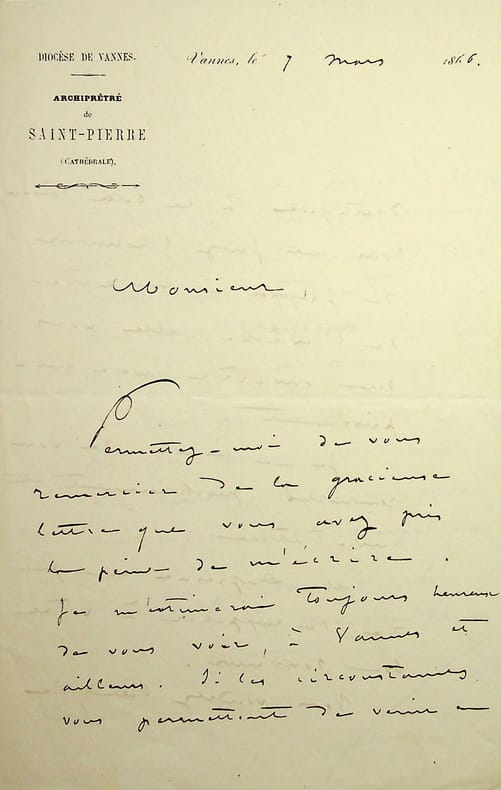 DIOCÈSE DE VANNES.
ARCHIPRÊTRÉ
de
SAINT-PIERRE
(CATHÉDRALE).
Vannes, le 7 mars 1866.
Monsieur,
Permettez-moi de vous
remercier de la gracieuse
lettre que vous avez pris
la peine de m'écrire.
Je m'estimerai toujours heureux
de vous voir, à Vannes et
ailleurs. Si les circonstances
vous permettent de venir en